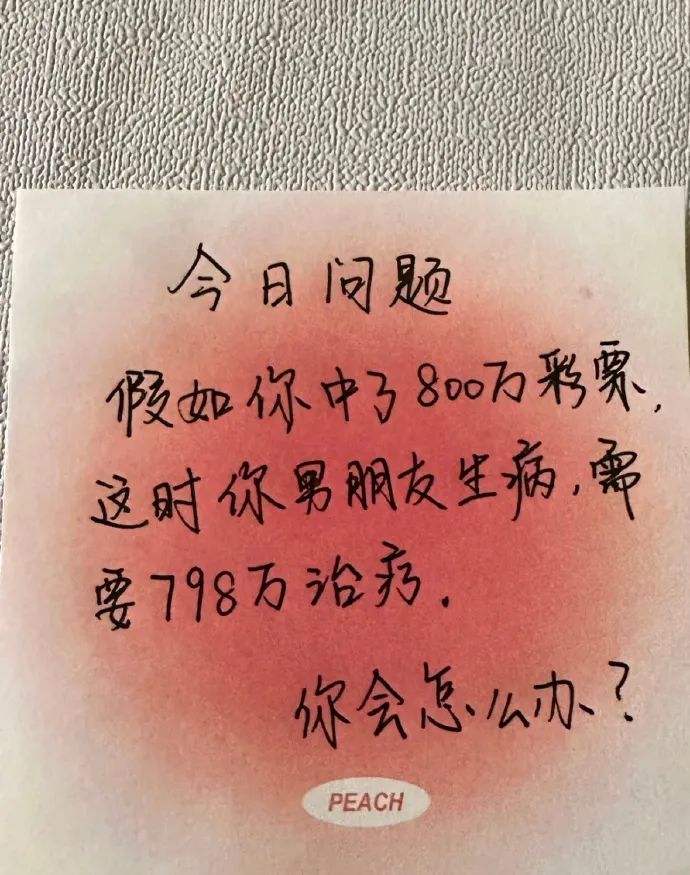 今日问题
假如你中了800万彩票,
这时你男朋友生病,需
要798万治疗.
你会怎么办?
PEACH